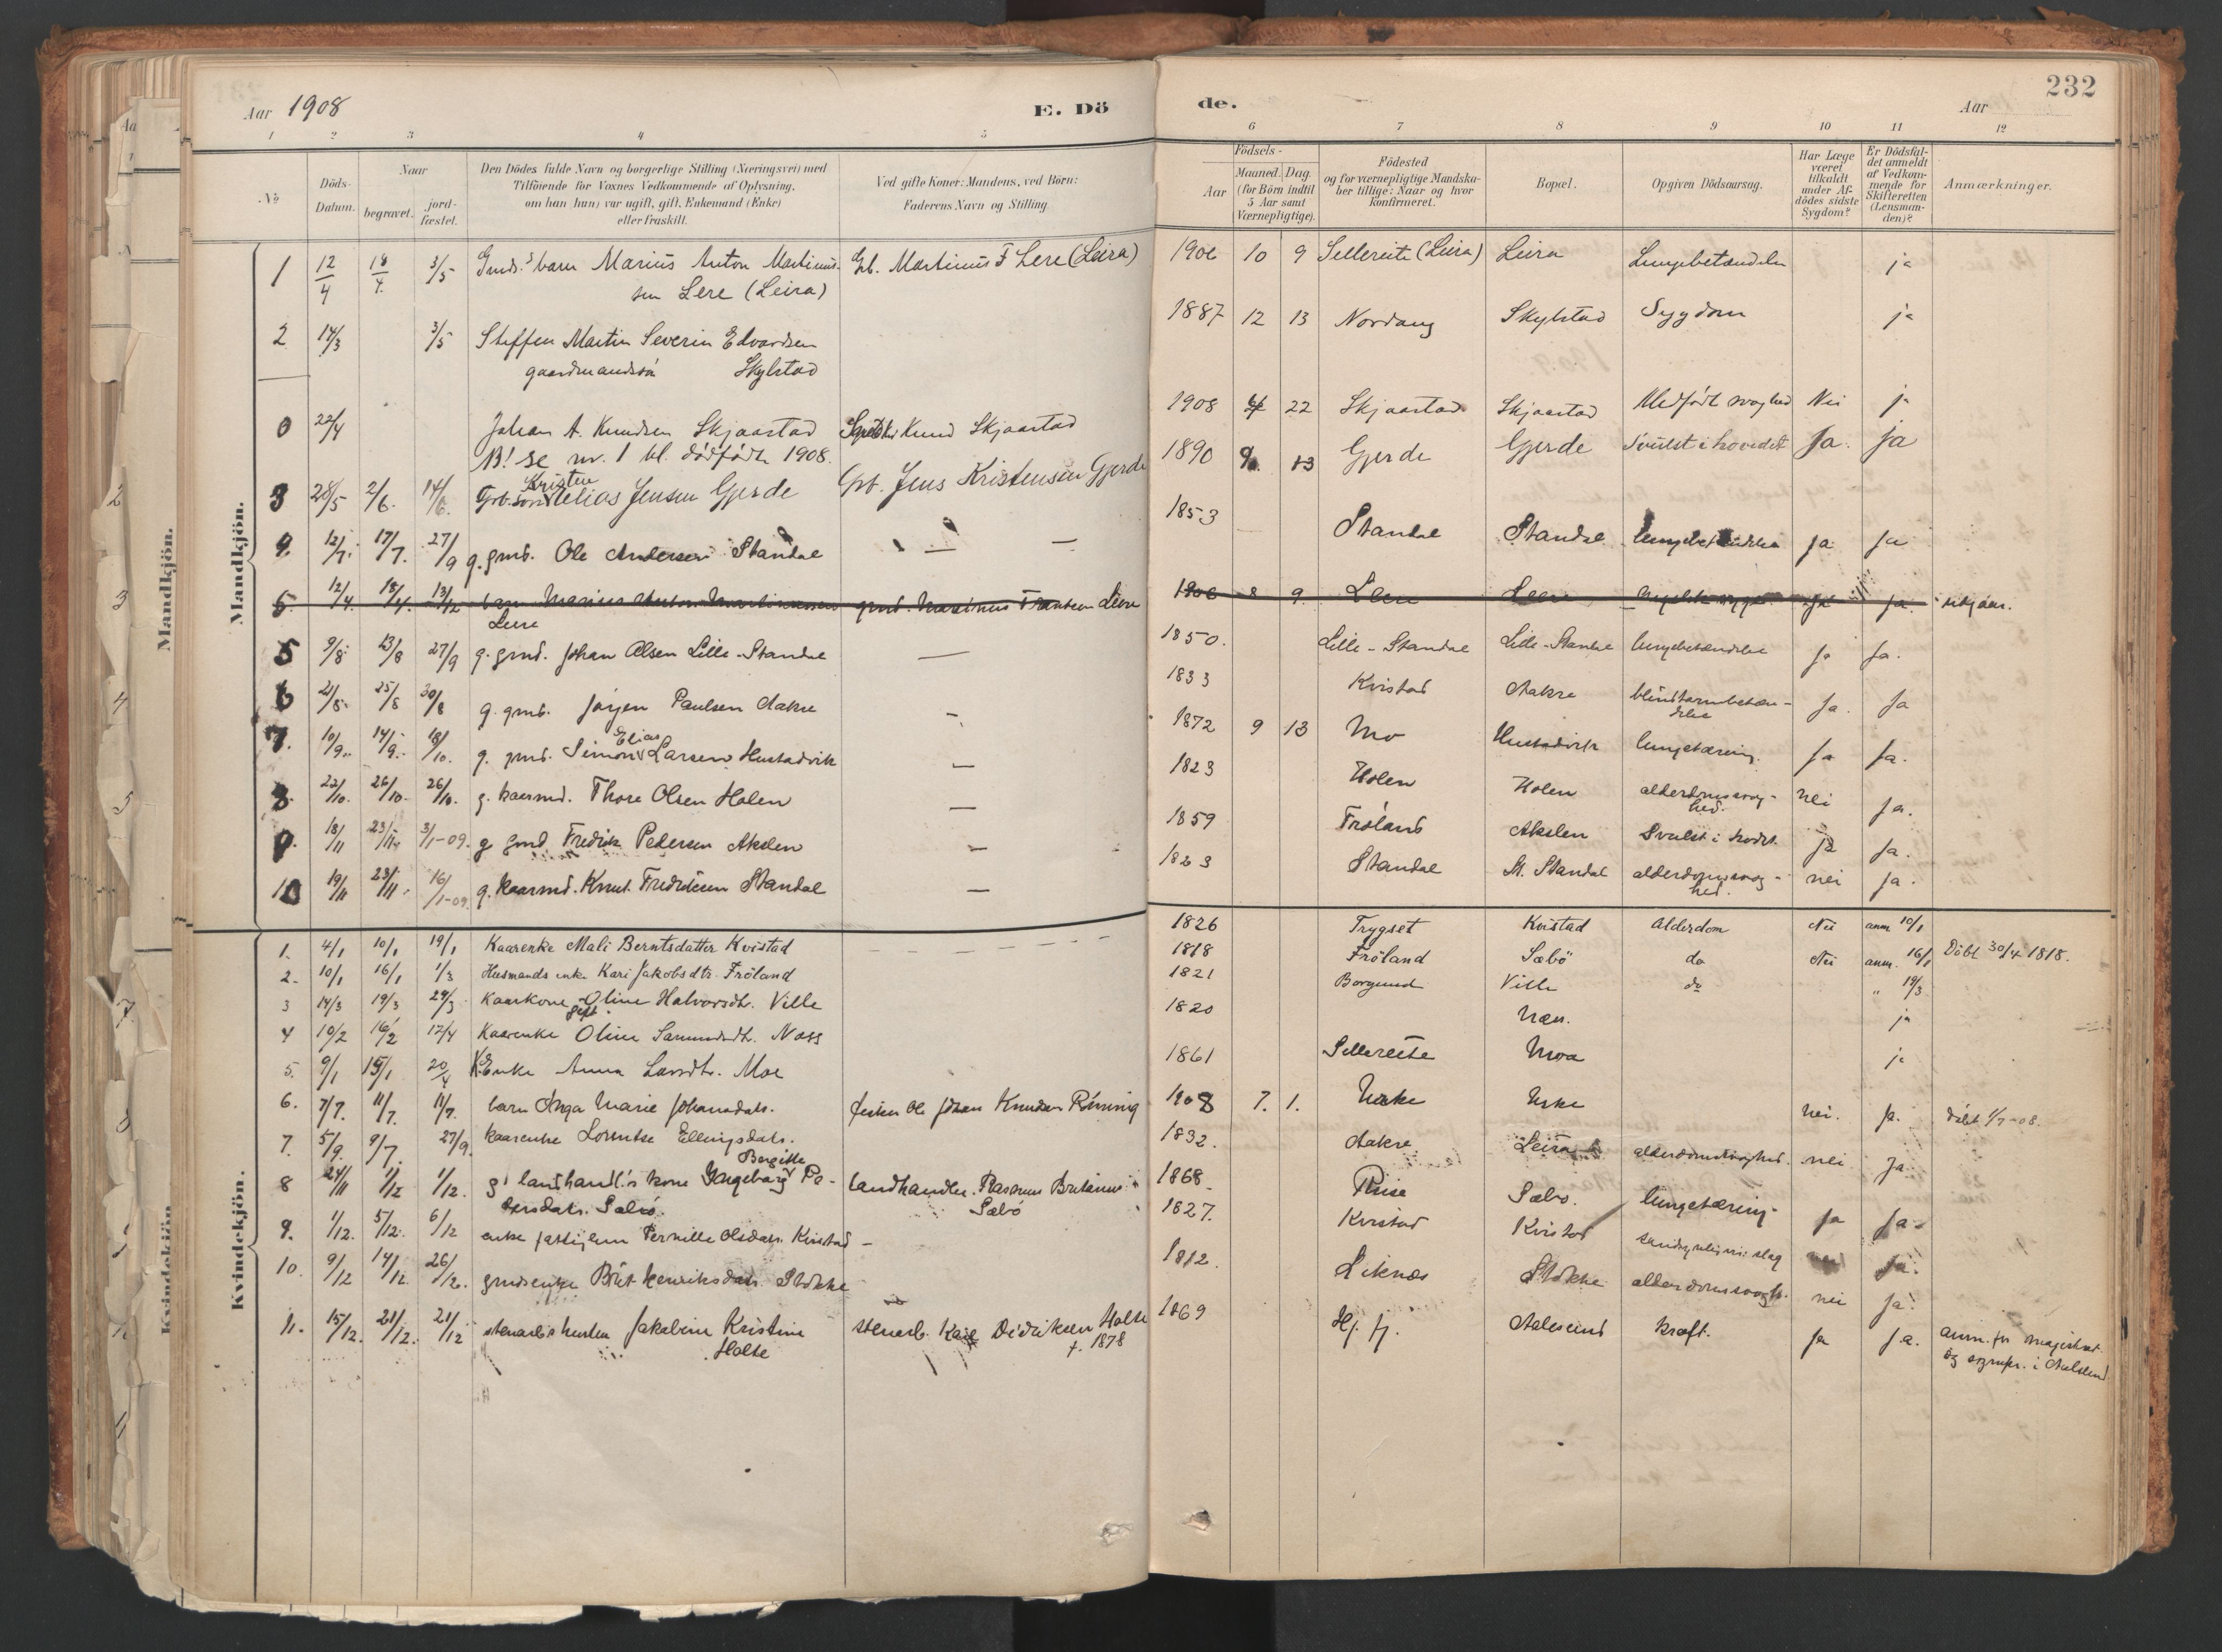 232
Aar 1908 E. Dö
de. Aar
1 2 3 4 5
6 7 8 9 10 11 12
№
Döds-Datum.
Naar
begravet. jord-fæstet.
Den Dödes fulde Navn og borgerlige Stilling (Næringsvei) med
Tilföiende for Voxnes Vedkommende af Oplysning,
om han (hun) var ugift, gift, Enkemand (Enke)
eller fraskilt.
Ved gifte Koner: Mandens, ved Börn:
Faderens Navn og Stilling
Födsels-
Aar Maaned. Dag.
(for Börn indtil
5 Aar samt
Værnepligtige).
Födested
og for værnepligtige Mandska-
ber tillige: Naar og hvor
konfirmeret.
Bopæl.
Opgiven Dödsaarsag.
Har Læge
været
tilkaldt
under Af-
dödes sidste
Sygdom?
Er Dödsfal-
det anmeldt
af Vedkom-
mende for
Skifteretten
(Lensman-
den)?
Anmærkninger.
Mandkjön.
1 12/4 18/4 3/5 Gmds. barn Marius Anton Martinus- Gb. Martinus F Lere (Leira) 1906 10 9 Sellereite (Leira) Leira Lungebetændelse ja
sen Lere (Leira)
2 14/3 3/5 Steffen Martin Severin Edvardsen 1887 12 13 Nordang Skylstad Sygdom ja
gaardmandssön Skylstad
0 22/4 Johan A. Knudsen Skjaastad Knud Skjaastad 1908 4 22 Skjaastad Skjaastad Medfödt svaghed Nei ja
NB! se nr. 1 bl. dödfödte 1908.
Kristen
3 28/5 2/6. 14/6. Grb. sön Elias Jensen Gjerde Grb. Jens Kristensen Gjerde 1890 9. 13 Gjerde Gjerde Svulst i hovedet Ja. ja
4. 12/7. 17/7. 27/9 g. gmd. Ole Andersen Standal — — 1853 Standal Standal lungebetændelse ja ja
5. 12/4. 18/4. 13/12 barn Marius Anton Martinussen gmd. Martinus Frantsen Leire 1906 8 9. Leire Leire ja ja. utgaar.
Leire
5 9/8 13/8 27/9 g. gmd. Johan Olsen Lille-Standal — 1850. Lille-Standal Lille-Standal lungebetændelse ja ja.
6 21/8. 25/8 30/8 g. gmd. Jörgen Paulsen Aakre — 1833 Kvistad Aakre blindtarmbetæn- ja. ja
delse
Elias
7. 10/9. 14/9. 18/10. g. gmd. Simon Larsen Hustadvik — 1872 9 13 Mo Hustadvik lungetæring. ja ja.
8. 22/10. 26/10. 26/10. g. kaarmd. Thore Olsen Holen — 1823 Holen Holen alderdomssvag- nei ja.
hed.
9. 18/11 23/11. 3/1-09. g gmd Fredrik Pedersen Akslen — 1859 Fröland Akslen Svulst i hodet. ja ja.
10 19/11 23/11. 16/1-09. g. kaarmd. Knut Fredriksen Standal — 1823 Standal St. Standal alderdomssvag- nei ja.
hed.
Kvindekjön.
1. 4/1 10/1 19/1 Kaarenke Mali Berntsdatter Kvistad 1826 Trygset Kvistad Alderdom Nei anm 10/1
2. 10/1 16/1 1/3 Husmands enke Kari Jakobsdtr Fröland 1818 Fröland Sæbö do Nei anm. 16/1 Döbt 30/4 1818.
3 14/3 19/3 29/3 Kaarkone Oline Halvorsdtr. Ville 1821 Borgund Ville do " 19/3
gift.
4 10/2 16/2 12/4 Kaarenke Oline Samundsdtr. Nass 1820 Næs. ja
5. 9/1 15/1 20/4 K. Enke Anna Larsdtr. Moe 1861 Sellereite Moa ja
6. 7/7. 11/7. 11/7. barn Inga Marie Johansdatr. fisker Ole Johan Knudsen Rönning 1908 7. 1. Urke Urke nei. ja. döbt 1/7-08.
7. 5/9. 9/7. 27/9. kaarenke Lorentse Ellingsdatr. 1832. Aakre Leira alderdomssvaghed. nei ja
Bergitte
8 24/11 1/12 1/12. g' landhandl's kone Ingeborg Pe- landhandler Rasmus Britanus 1868 Riise Sæbö. lungetæring. ja ja.
dersdatr. Sæbö. Sæbö
9. 1/12. 5/12. 6/12 enke fattiglem Pernille Olsdatr. Kvistad — 1827. Kvistad Kvistad sandsynligvis: slag nei ja.
10. 9/12 14/12 26/12. gmdsenke Brit Henriksdatr. Stokke — 1812. Liknes Stokke alderdomssvagh. nei ja.
11. 15/12. 21/12. 21/12 stenarb's hustru Jakobine Kristine stenarb. Karl Didriksen Holte 1869 Hj. fj. Aalesund kræft. ja ja. anm. for magistrat.
Holte f. 1878 og sognepr. i Aalesund